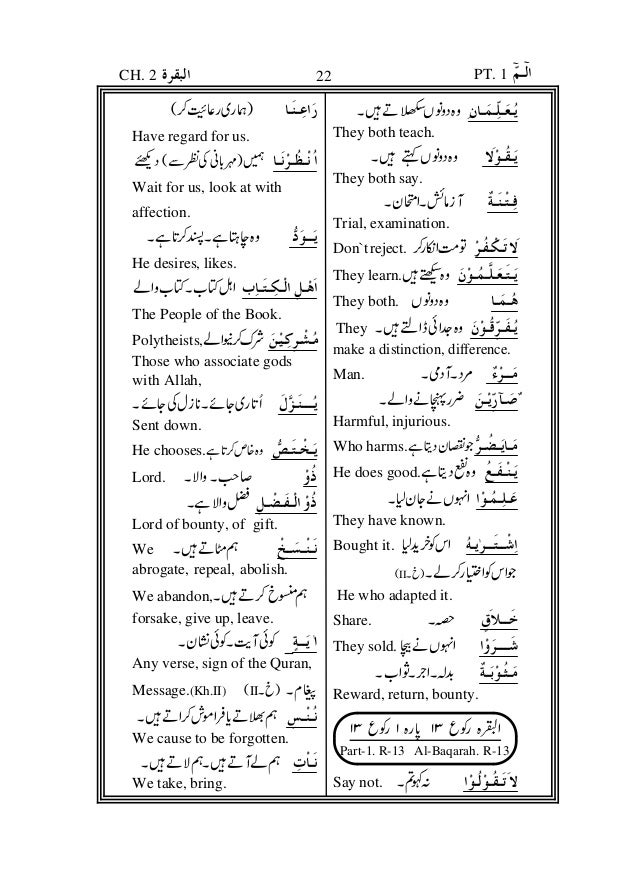 CH. 2 البقرة
22
PT. 1 الٓمّٓ
يُعَلِّمَانِ وہ دونوں سکھلاتے ہیں۔
They both teach.
يَقُوْلَا وہ دونوں کہتے ہیں۔
They both say.
فِتْنَةٌ آزمائش۔ امتحان۔
Trial, examination.
لَا تَكْفُرْ تو مت انکار کر Don`t reject.
يَتَعَلَّمُوْنَ وہ سیکھتے ہیں۔ They learn.
هُمَا وہ دونوں They both.
يُفَرِّقُوْنَ وہ جدائی ڈالتے ہیں۔ They
make a distinction, difference.
مَرْءٌ مرد۔ آدمی۔ Man.
ضَآرِّيْنَ ضرر پہنچانے والے۔
Harmful, injurious.
مَايَضُرُّ جو نقصان دیتا ہے۔ Who harms.
يَنْفَعُ وہ نفع دیتا ہے۔ He does good.
عَلِمُوْا انہوں نے جان لیا۔
They have known.
اِشْتَرٰىهُ اس کو خرید لیا۔ Bought it.
جو اس کو اختیار کرلے۔ (خ۔II)
He who adapted it.
خَلَاقٍ حصہ۔ Share.
شَرَوْا انہوں نے بیچا۔ They sold.
مَثُوْبَةٌ بدلہ۔ اجر۔ ثواب۔
Reward, return, bounty.
البقرہ رکوع ۱۳ پارہ ۱ رکوع ۱۳
Part-1. R-13 Al-Baqarah. R-13
لَا تَقُوْلُوْا نہ کہو تم۔ Say not.
رَاعِنَا (ہماری رعایت کر)
Have regard for us.
اُنْظُرْنَا ہمیں (مہربانی کی نظر سے) دیکھئے
Wait for us, look at with
affection.
يَوَدُّ وہ چاہتا ہے۔ پسند کرتا ہے۔
He desires, likes.
اَهْلِ الْكِتَابِ اہل کتاب۔ کتاب والے
The People of the Book.
مُشْرِكِيْنَ شرک کرنیوالے Polytheists,
Those who associate gods
with Allah,
يُنَزَّلَ اُتاری جائے۔ نازل کی جائے۔
Sent down.
يَخْتَصُّ وہ خاص کرتا ہے۔ He chooses.
ذُوْ صاحب۔ والا۔ Lord.
ذُوْ الْفَضْلِ فضل والا ہے۔
Lord of bounty, of gift.
نَنْسَخْ ہم مٹاتے ہیں۔ We
abrogate, repeal, abolish.
ہم منسوخ کرتے ہیں۔ We abandon,
forsake, give up, leave.
اٰيَةٍ کوئی آیت۔ کوئی نشان۔
Any verse, sign of the Quran,
پیغام۔ (خ۔II) Message.(Kh.II)
نُنْسِ ہم بھلاتے یا فراموش کراتے ہیں۔
We cause to be forgotten.
نَاْتِ ہم لے آتے ہیں۔ ہم لاتے ہیں۔
We take, bring.